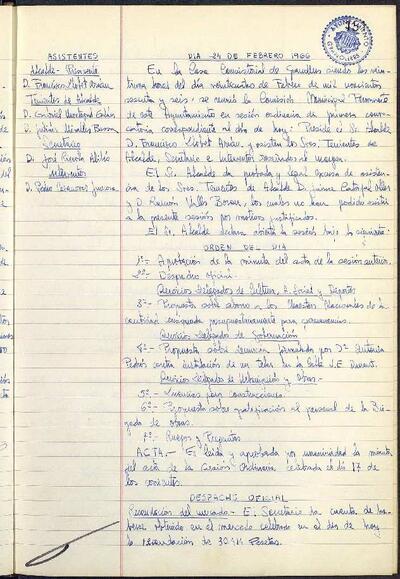 ASISTENTES
Alcalde - Presidente
D. Francisco Llobet Arnán
Tenientes de Alcalde
D. Gabriel
D. Julián Bassa
Secretario
D. José
Interventor
D. Pedro
DIA 24 DE FEBRERO 1966
En la Casa Consistorial de Granollers siendo las vein-
tiuna horas del día veinticuatro de Febrero de mil novecientos
sesenta y seis, se reunió la Comisión Municipal Permanente
de este Ayuntamiento en sesión ordinaria de primera convo-
catoria correspondiente al día de hoy. Preside el Sr. Alcalde
D. Francisco Llobet Arnán, y asisten los Sres. Tenientes de
Alcalde, Secretario e Interventor reseñados al margen.
El Sr. Alcalde da por probada y legal excusa de asisten-
cia de los Sres. Tenientes de Alcalde D. Jaime
y D. Ramón Valls, los cuales no han podido asistir
a la presente sesión por motivos justificados.
El Sr. Alcalde declara abierta la sesión bajo la siguiente
ORDEN DEL DIA
1º.- Aprobación de la minuta del acta de la sesión anterior.
2º.- Despacho oficial
Servicios delegados de Cultura, A. Social y Deportes
3º.- Propuesta sobre abono a los Maestros Nacionales de la
cantidad consignada presupuestariamente para
Servicios delegados de Gobernación
4º.- Propuesta sobre denuncia formulada por Dª Antonia
Pedrós contra instalación de un telar en la calle
Servicios delegados de Urbanización y Obras.-
5º.- Licencias para construcciones.
6º.- Propuesta sobre gratificación al personal de la Bri-
gada de obras.
7º.- Ruegos y Preguntas
ACTA.- Es leída y aprobada por unanimidad la minuta
del acta de la sesión Ordinaria celebrada el día 17 de
los corrientes.
DESPACHO OFICIAL
Recaudación del mercado.- El Secretario da cuenta de ha-
berse obtenido en el mercado celebrado en el día de hoy
la recaudación de Pesetas.